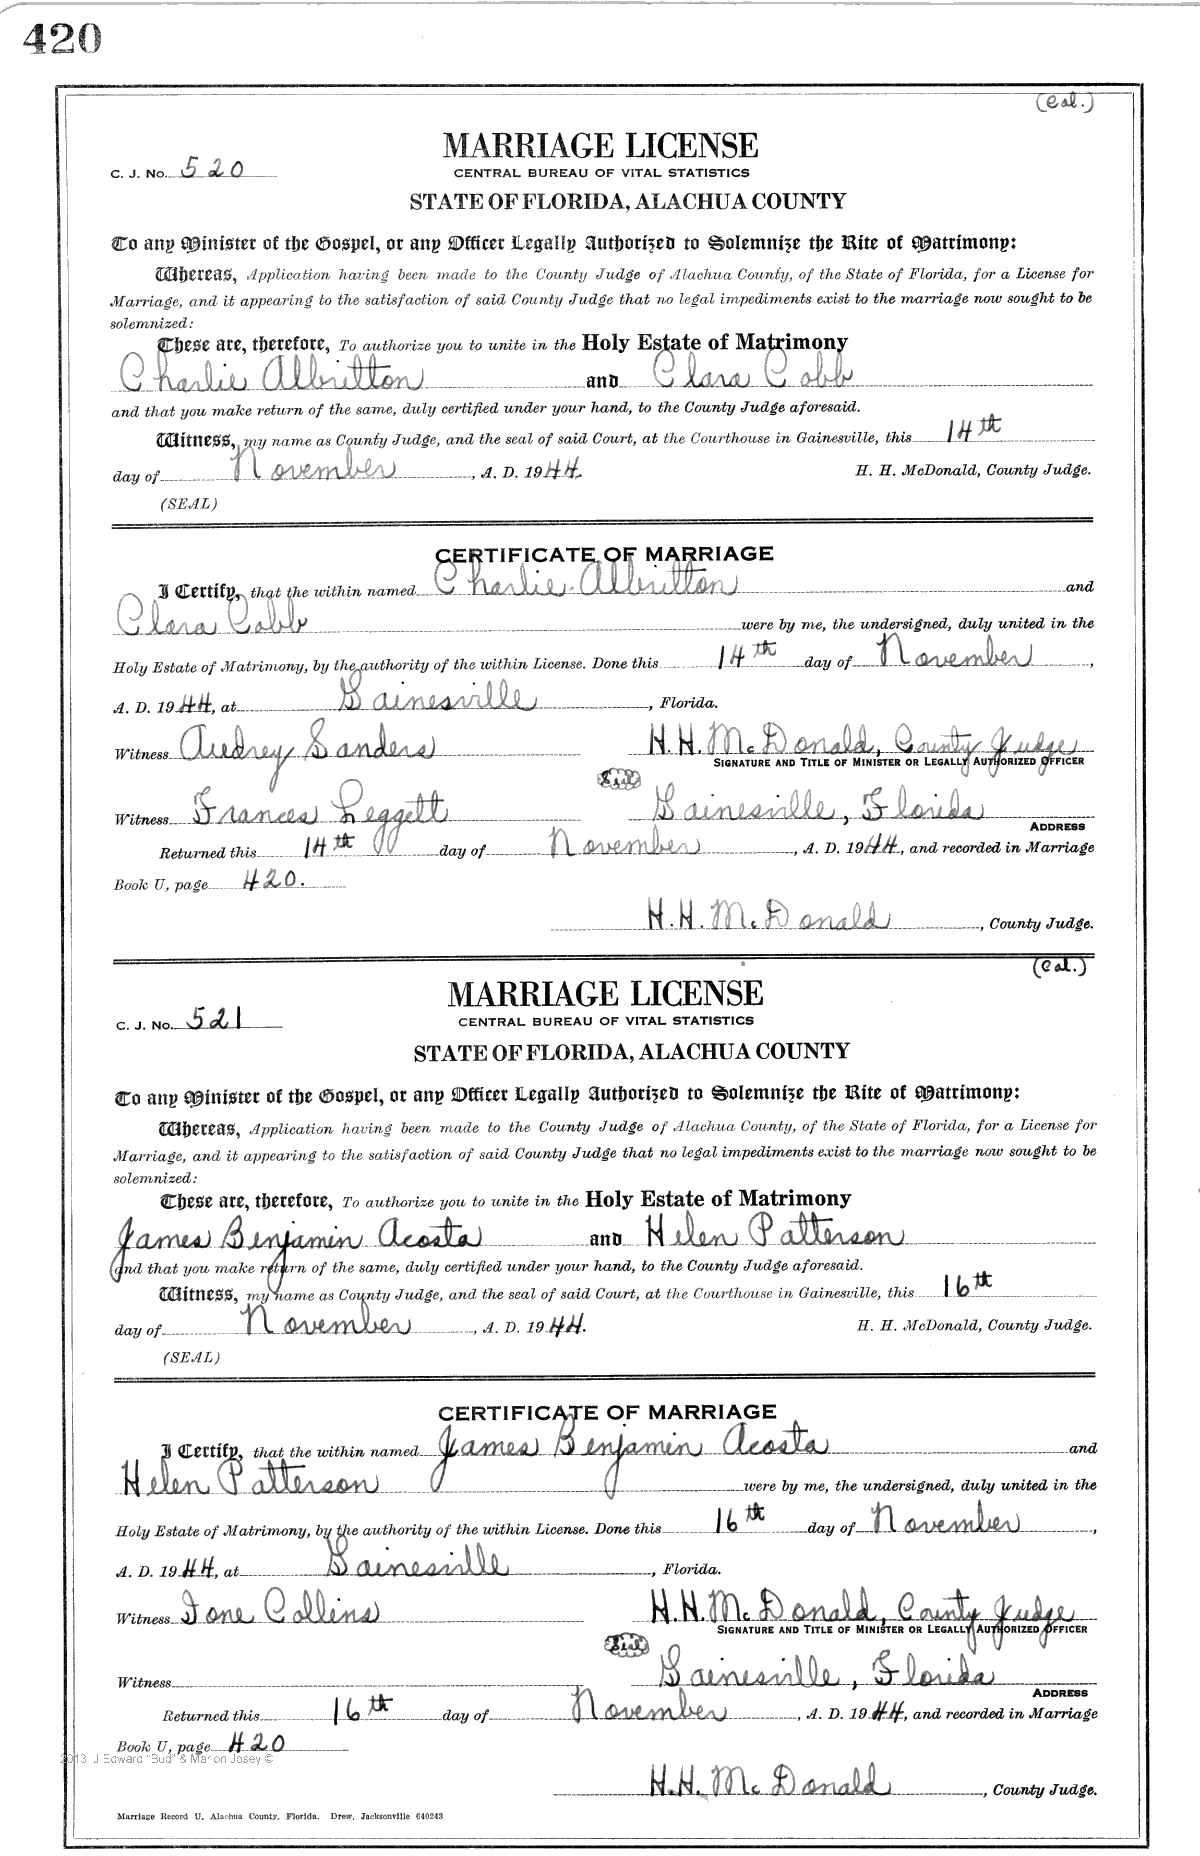 420
(Col.)
MARRIAGE LICENSE
C. J. No. 520
CENTRAL BUREAU OF VITAL STATISTICS
STATE OF FLORIDA, ALACHUA COUNTY
To any Minister of the Gospel, or any Officer Legally Authorized to Solemnize the Rite of Matrimony:
Whereas, Application having been made to the County Judge of Alachua County, of the State of Florida, for a License for
Marriage, and it appearing to the satisfaction of said County Judge that no legal impediments exist to the marriage now sought to be
solemnized:
These are, therefore, To authorize you to unite in the Holy Estate of Matrimony
Charlie Albritton and Clara Cobb
and that you make return of the same, duly certified under your hand, to the County Judge aforesaid.
Witness, my name as County Judge, and the seal of said Court, at the Courthouse in Gainesville, this 14th
day of November, A. D. 1944. H. H. McDonald, County Judge.
(SEAL)
CERTIFICATE OF MARRIAGE
I Certify, that the within named Charlie Albritton and
Clara Cobb were by me, the undersigned, duly united in the
Holy Estate of Matrimony, by the authority of the within License. Done this 14th day of November,
A. D. 1944, at Gainesville, Florida.
Witness Audrey Sanders H. H. McDonald, County Judge
SIGNATURE AND TITLE OF MINISTER OR LEGALLY AUTHORIZED OFFICER
Seal
Witness Frances Leggett Gainesville, Florida
ADDRESS
Returned this 14th day of November, A. D. 1944, and recorded in Marriage
Book U, page 420.
H. H. McDonald, County Judge.
(Col.)
MARRIAGE LICENSE
C. J. No. 521
CENTRAL BUREAU OF VITAL STATISTICS
STATE OF FLORIDA, ALACHUA COUNTY
To any Minister of the Gospel, or any Officer Legally Authorized to Solemnize the Rite of Matrimony:
Whereas, Application having been made to the County Judge of Alachua County, of the State of Florida, for a License for
Marriage, and it appearing to the satisfaction of said County Judge that no legal impediments exist to the marriage now sought to be
solemnized:
These are, therefore, To authorize you to unite in the Holy Estate of Matrimony
James Benjamin Acosta and Helen Patterson
and that you make return of the same, duly certified under your hand, to the County Judge aforesaid.
Witness, my name as County Judge, and the seal of said Court, at the Courthouse in Gainesville, this 16th
day of November, A. D. 1944. H. H. McDonald, County Judge.
(SEAL)
CERTIFICATE OF MARRIAGE
I Certify, that the within named James Benjamin Acosta and
Helen Patterson were by me, the undersigned, duly united in the
Holy Estate of Matrimony, by the authority of the within License. Done this 16th day of November,
A. D. 1944, at Gainesville, Florida.
Witness Ione Collins H. H. McDonald, County Judge
SIGNATURE AND TITLE OF MINISTER OR LEGALLY AUTHORIZED OFFICER
Seal
Gainesville, Florida
Witness
ADDRESS
Returned this 16th day of November, A. D. 1944, and recorded in Marriage
Book U, page 420
2013 J Edward "Bud" & Marion Josey ©
H. H. McDonald, County Judge.
Marriage Record U, Alachua County, Florida. Drew, Jacksonville 640243